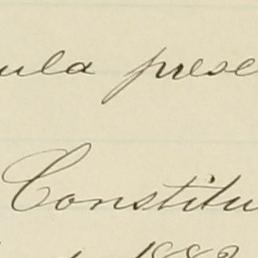 ula prese
Constitu
1882